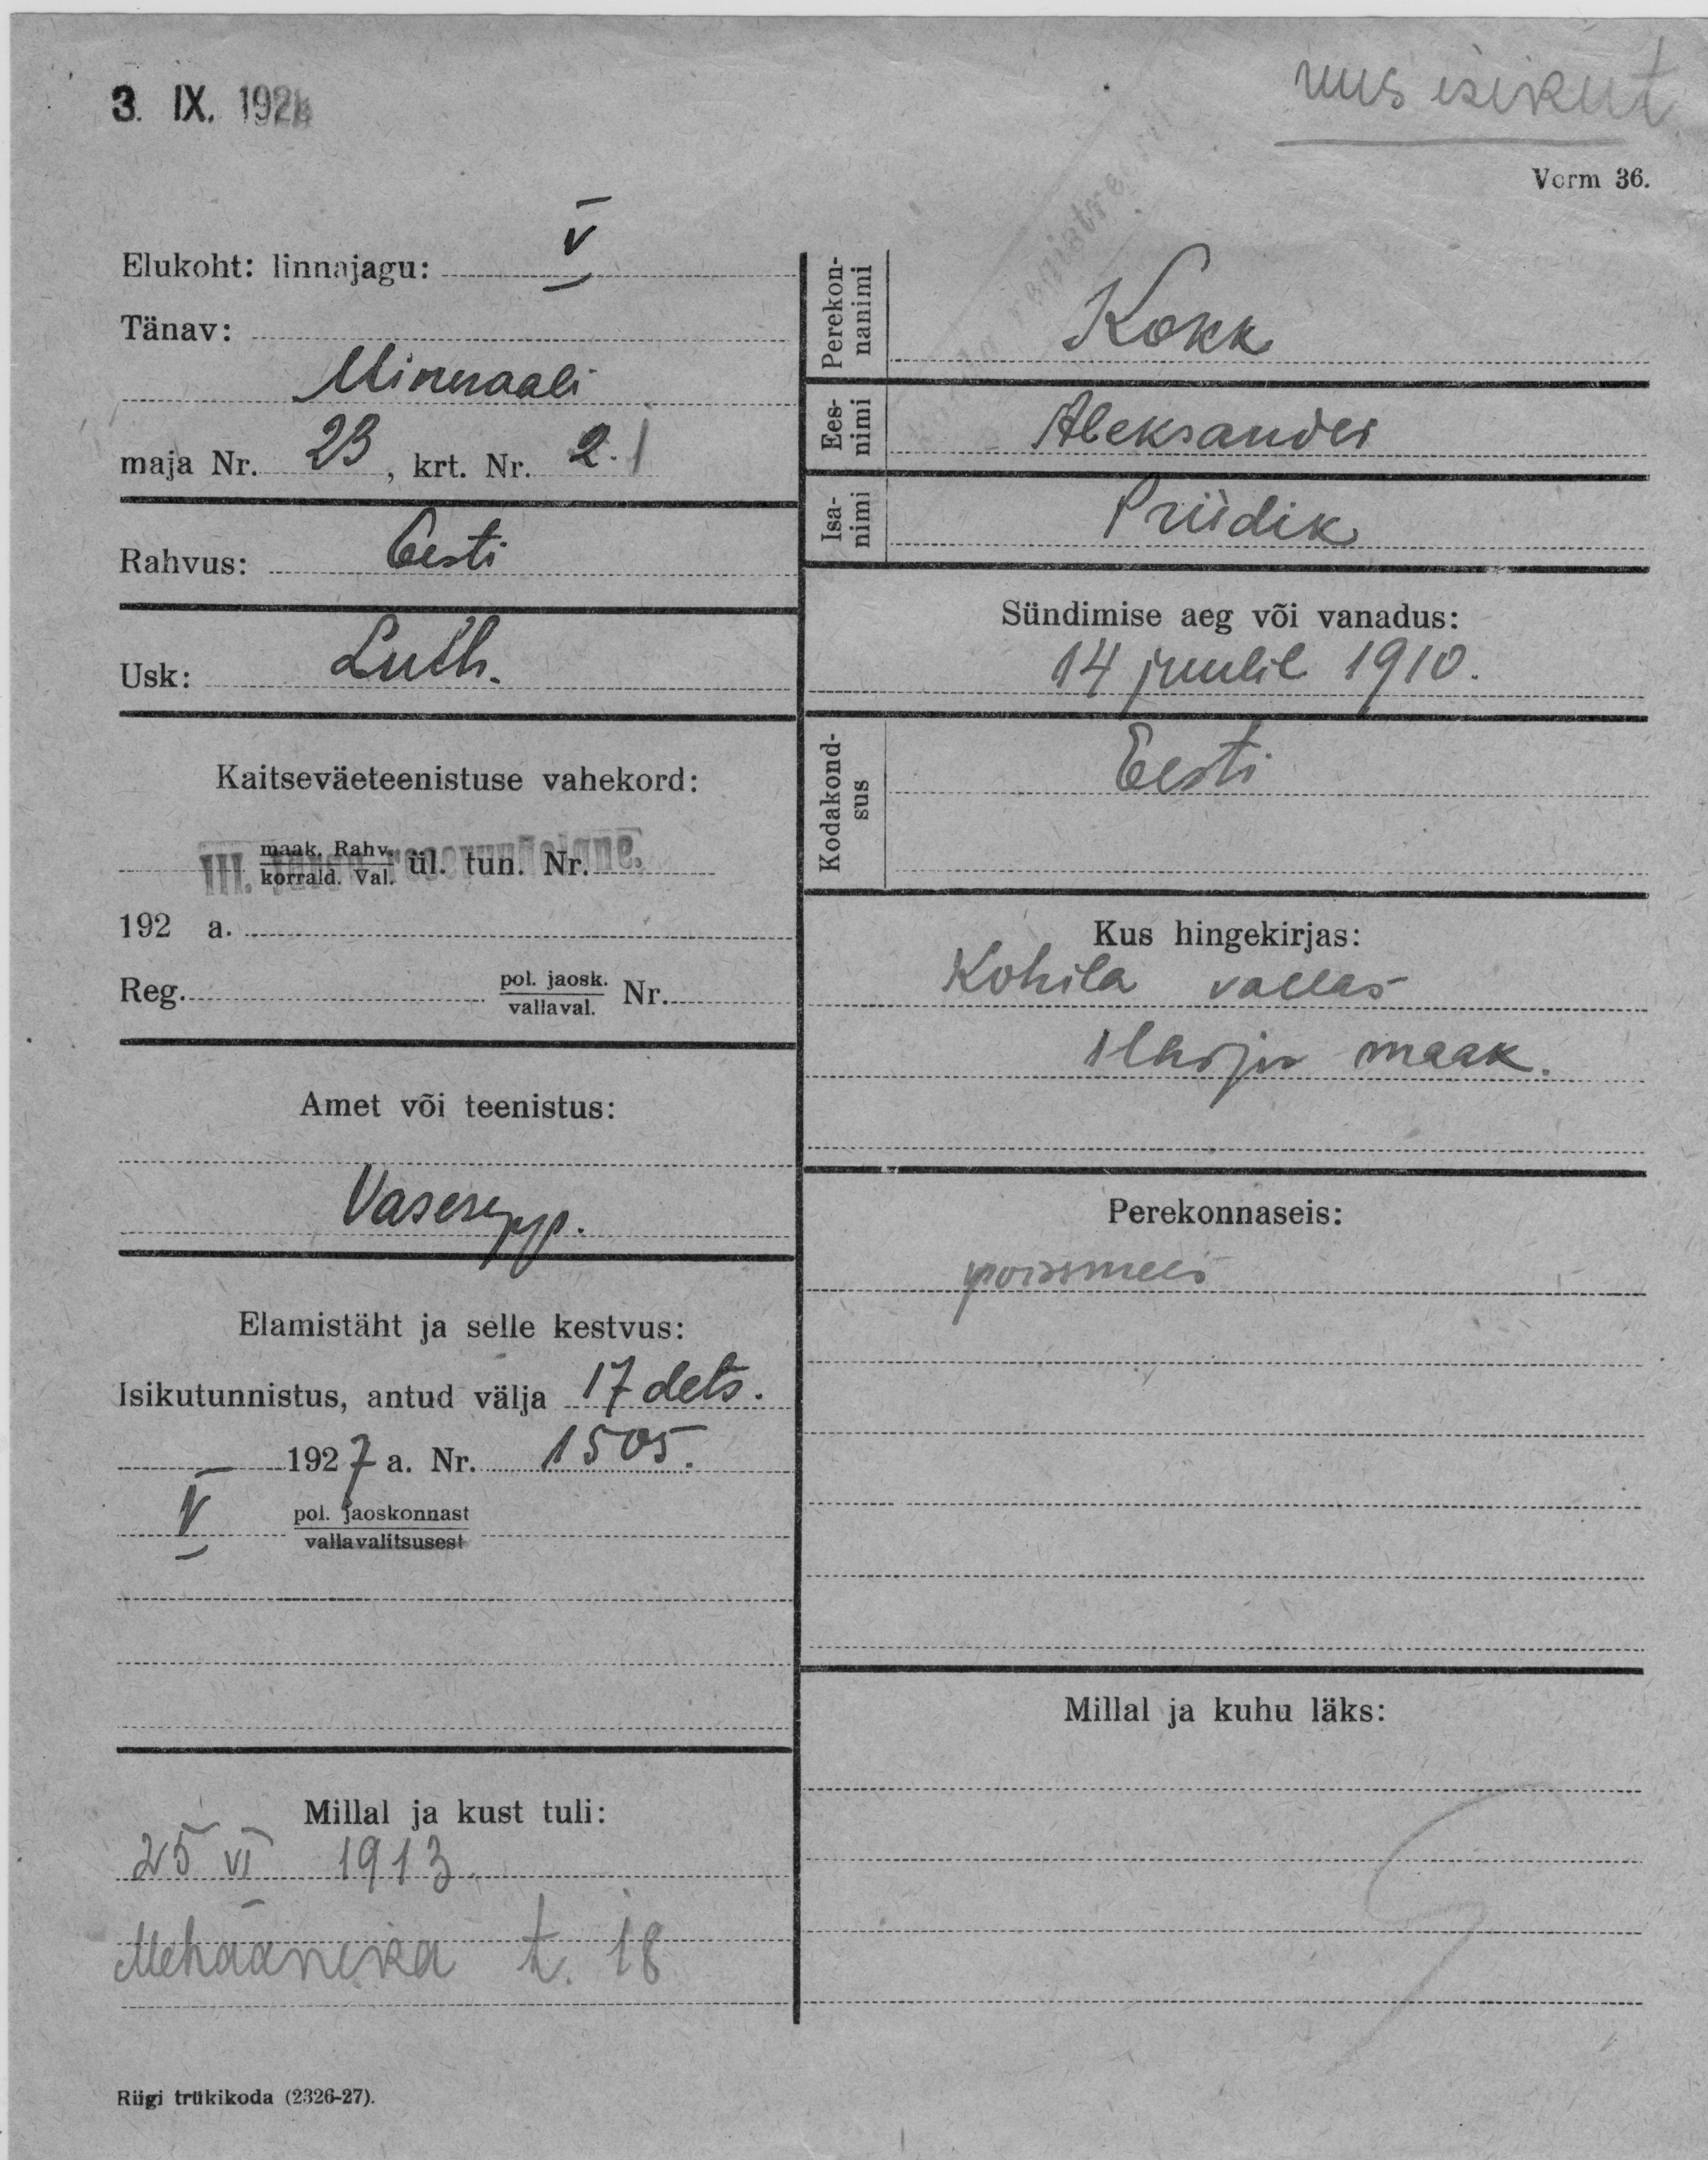 3. IX. 192
uus isikut.
Vorm 36.
Elukoht: linnajagu: V
Tänav:
Mineraali
maja Nr. 23, krt. Nr. 2.
Rahvus: Eesti
Usk: Luth.
Kaitseväeteenistuse vahekord:
III.
maak. Rahv.
korrald. Val. ül. tun. Nr.
192 a.
Reg. pol. jaosk.
vallaval. Nr.
Amet või teenistus:
Vasesepp.
Elamistäht ja selle kestvus:
Isikutunnistus, antud välja 17 dets.
1927 a. Nr. 1505.
V pol. jaoskonnast
vallavalitsusest
Millal ja kust tuli:
25 VI 1913.
Mehaanika t. 18
Riigi trükikoda (2326-27).
Perekon-
nanimi
Kokk
Ees-
nimi
Aleksander
Isa-
nimi
Priidik
Sündimise aeg või vanadus:
14 juulil 1910.
Kodakond-
sus
Eesti
Kus hingekirjas:
Kohila vallas
Harju maak.
Perekonnaseis:
poissmees
Millal ja kuhu läks: